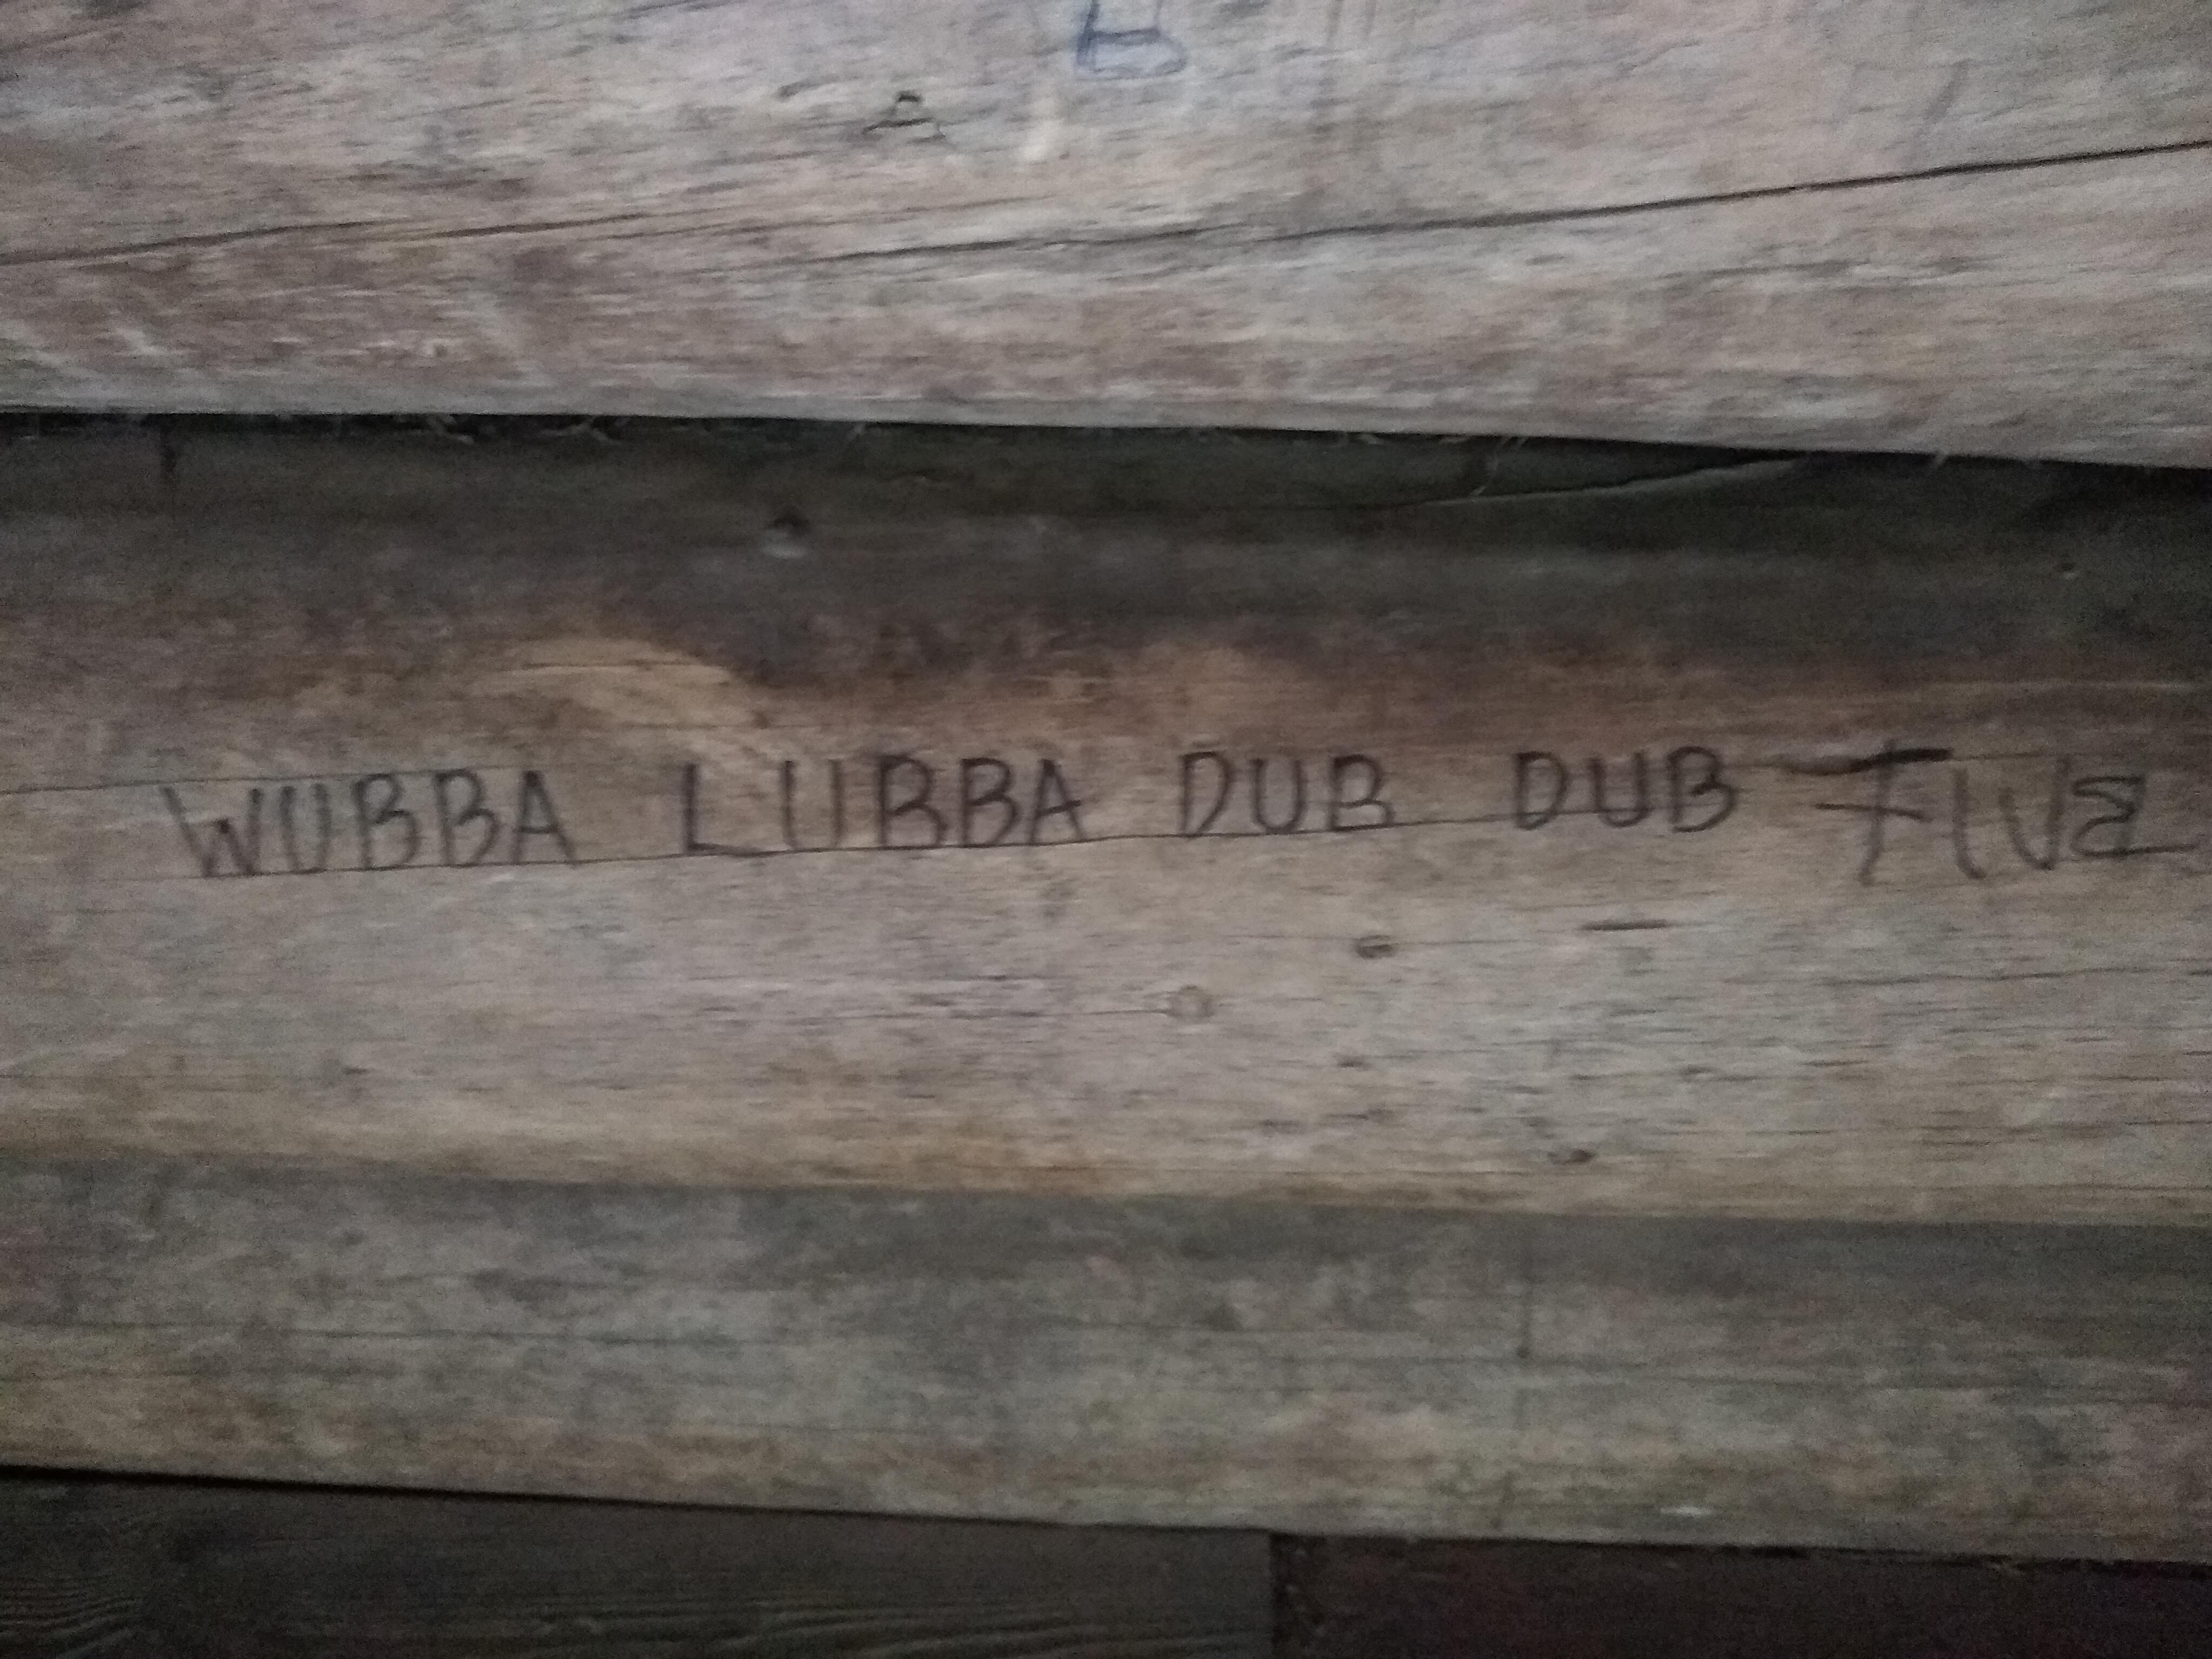 WUBBA LUBBA DUB DUB